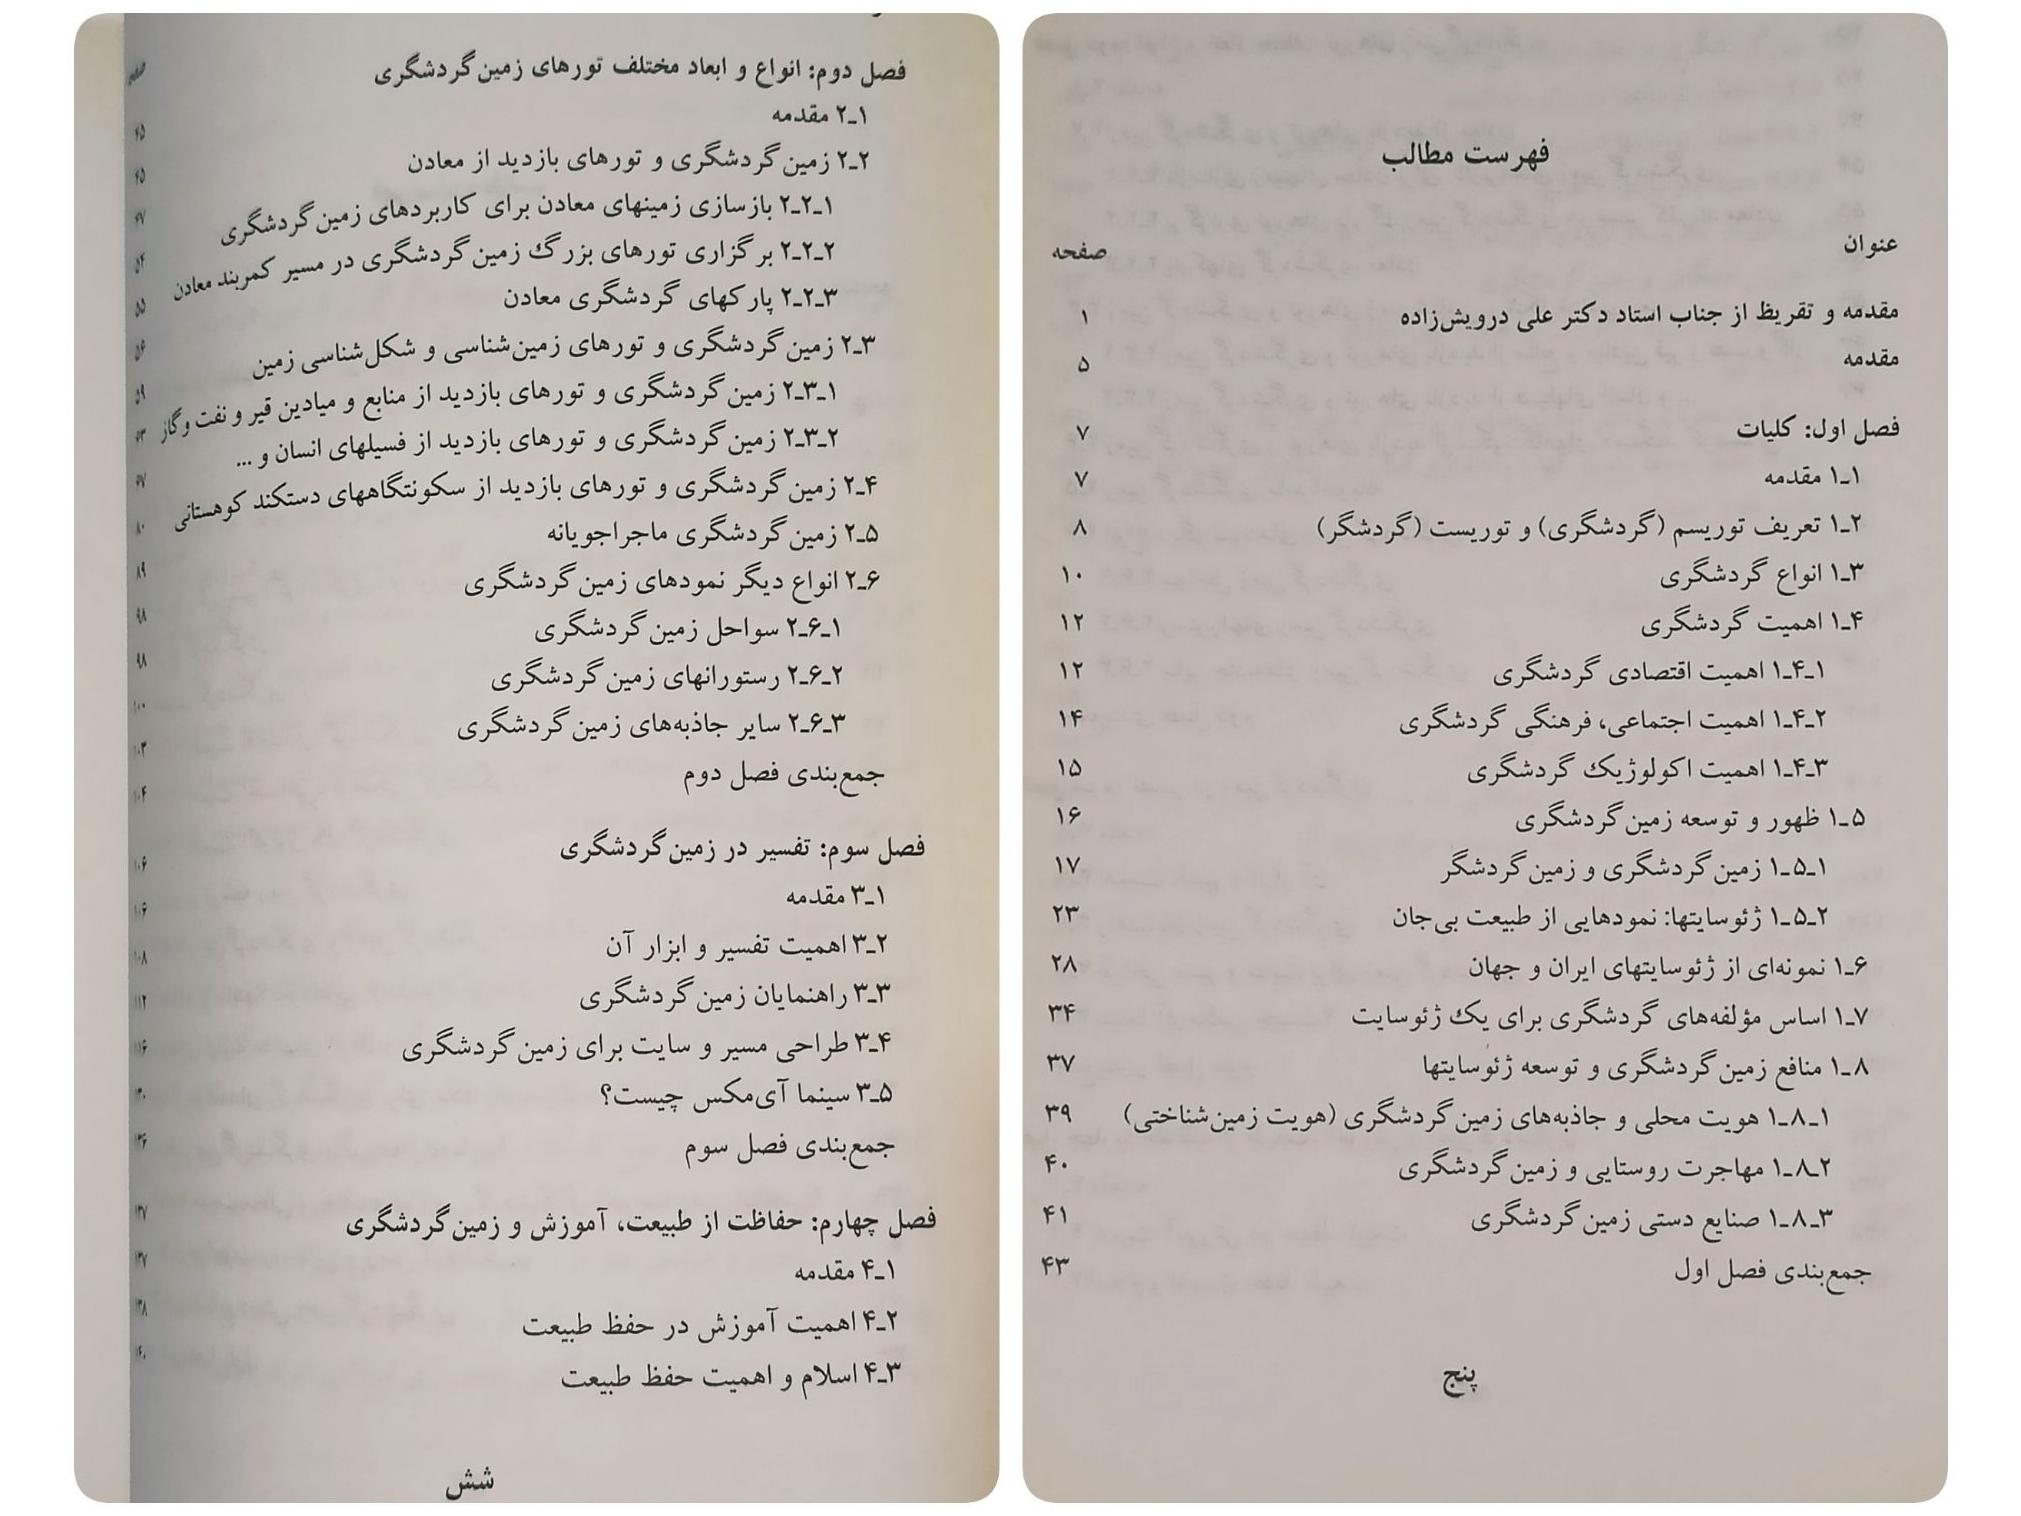 فهرست مطالب
عنوان صفحه
مقدمه و تقریظ از جناب استاد دکتر علی درویش‌زاده ۱
مقدمه ۵
فصل اول: کلیات ۷
۱ـ۱ مقدمه ۷
۱ـ۲ تعریف توریسم (گردشگری) و توریست (گردشگر) ۸
۱ـ۳ انواع گردشگری ۱۰
۱ـ۴ اهمیت گردشگری ۱۲
۱ـ۴ـ۱ اهمیت اقتصادی گردشگری ۱۲
۱ـ۴ـ۲ اهمیت اجتماعی، فرهنگی گردشگری ۱۴
۱ـ۴ـ۳ اهمیت اکولوژیک گردشگری ۱۵
۱ـ۵ ظهور و توسعه زمین‌گردشگری ۱۶
۱ـ۵ـ۱ زمین‌گردشگری و زمین‌گردشگر ۱۷
۱ـ۵ـ۲ ژئوسایتها: نمودهایی از طبیعت بی‌جان ۲۳
۱ـ۶ نمونه‌ای از ژئوسایتهای ایران و جهان ۲۸
۱ـ۷ اساس مؤلفه‌های گردشگری برای یک ژئوسایت ۳۴
۱ـ۸ منافع زمین‌گردشگری و توسعه ژئوسایتها ۳۷
۱ـ۸ـ۱ هویت محلی و جاذبه‌های زمین‌گردشگری (هویت زمین‌شناختی) ۳۹
۱ـ۸ـ۲ مهاجرت روستایی و زمین‌گردشگری ۴۰
۱ـ۸ـ۳ صنایع دستی زمین‌گردشگری ۴۱
جمع‌بندی فصل اول ۴۳
پنج
فصل دوم: انواع و ابعاد مختلف تورهای زمین‌گردشگری
۲ـ۱ مقدمه ۴۵
۲ـ۲ زمین‌گردشگری و تورهای بازدید از معادن ۴۵
۲ـ۲ـ۱ بازسازی زمینهای معادن برای کاربردهای زمین‌گردشگری ۴۷
۲ـ۲ـ۲ برگزاری تورهای بزرگ زمین‌گردشگری در مسیر کمربند معادن ۵۴
۲ـ۲ـ۳ پارکهای گردشگری معادن ۵۵
۲ـ۳ زمین‌گردشگری و تورهای زمین‌شناسی و شکل‌شناسی زمین ۵۶
۲ـ۳ـ۱ زمین‌گردشگری و تورهای بازدید از منابع و میادین قیر و نفت و گاز ۵۹
۲ـ۳ـ۲ زمین‌گردشگری و تورهای بازدید از فسیلهای انسان و ...
۲ـ۴ زمین‌گردشگری و تورهای بازدید از سکونتگاههای دستکند کوهستانی
۲ـ۵ زمین‌گردشگری ماجراجویانه ۸۰
۲ـ۶ انواع دیگر نمودهای زمین‌گردشگری ۸۹
۲ـ۶ـ۱ سواحل زمین‌گردشگری ۹۸
۲ـ۶ـ۲ رستورانهای زمین‌گردشگری ۹۸
۲ـ۶ـ۳ سایر جاذبه‌های زمین‌گردشگری ۱۰۰
جمع‌بندی فصل دوم
فصل سوم: تفسیر در زمین‌گردشگری ۱۰۶
۳ـ۱ مقدمه ۱۰۶
۳ـ۲ اهمیت تفسیر و ابزار آن ۱۰۸
۳ـ۳ راهنمایان زمین‌گردشگری ۱۱۲
۳ـ۴ طراحی مسیر و سایت برای زمین‌گردشگری ۱۱۶
۳ـ۵ سینما آی‌مکس چیست؟
جمع‌بندی فصل سوم
فصل چهارم: حفاظت از طبیعت، آموزش و زمین‌گردشگری
۴ـ۱ مقدمه
۴ـ۲ اهمیت آموزش در حفظ طبیعت
۴ـ۳ اسلام و اهمیت حفظ طبیعت
شش